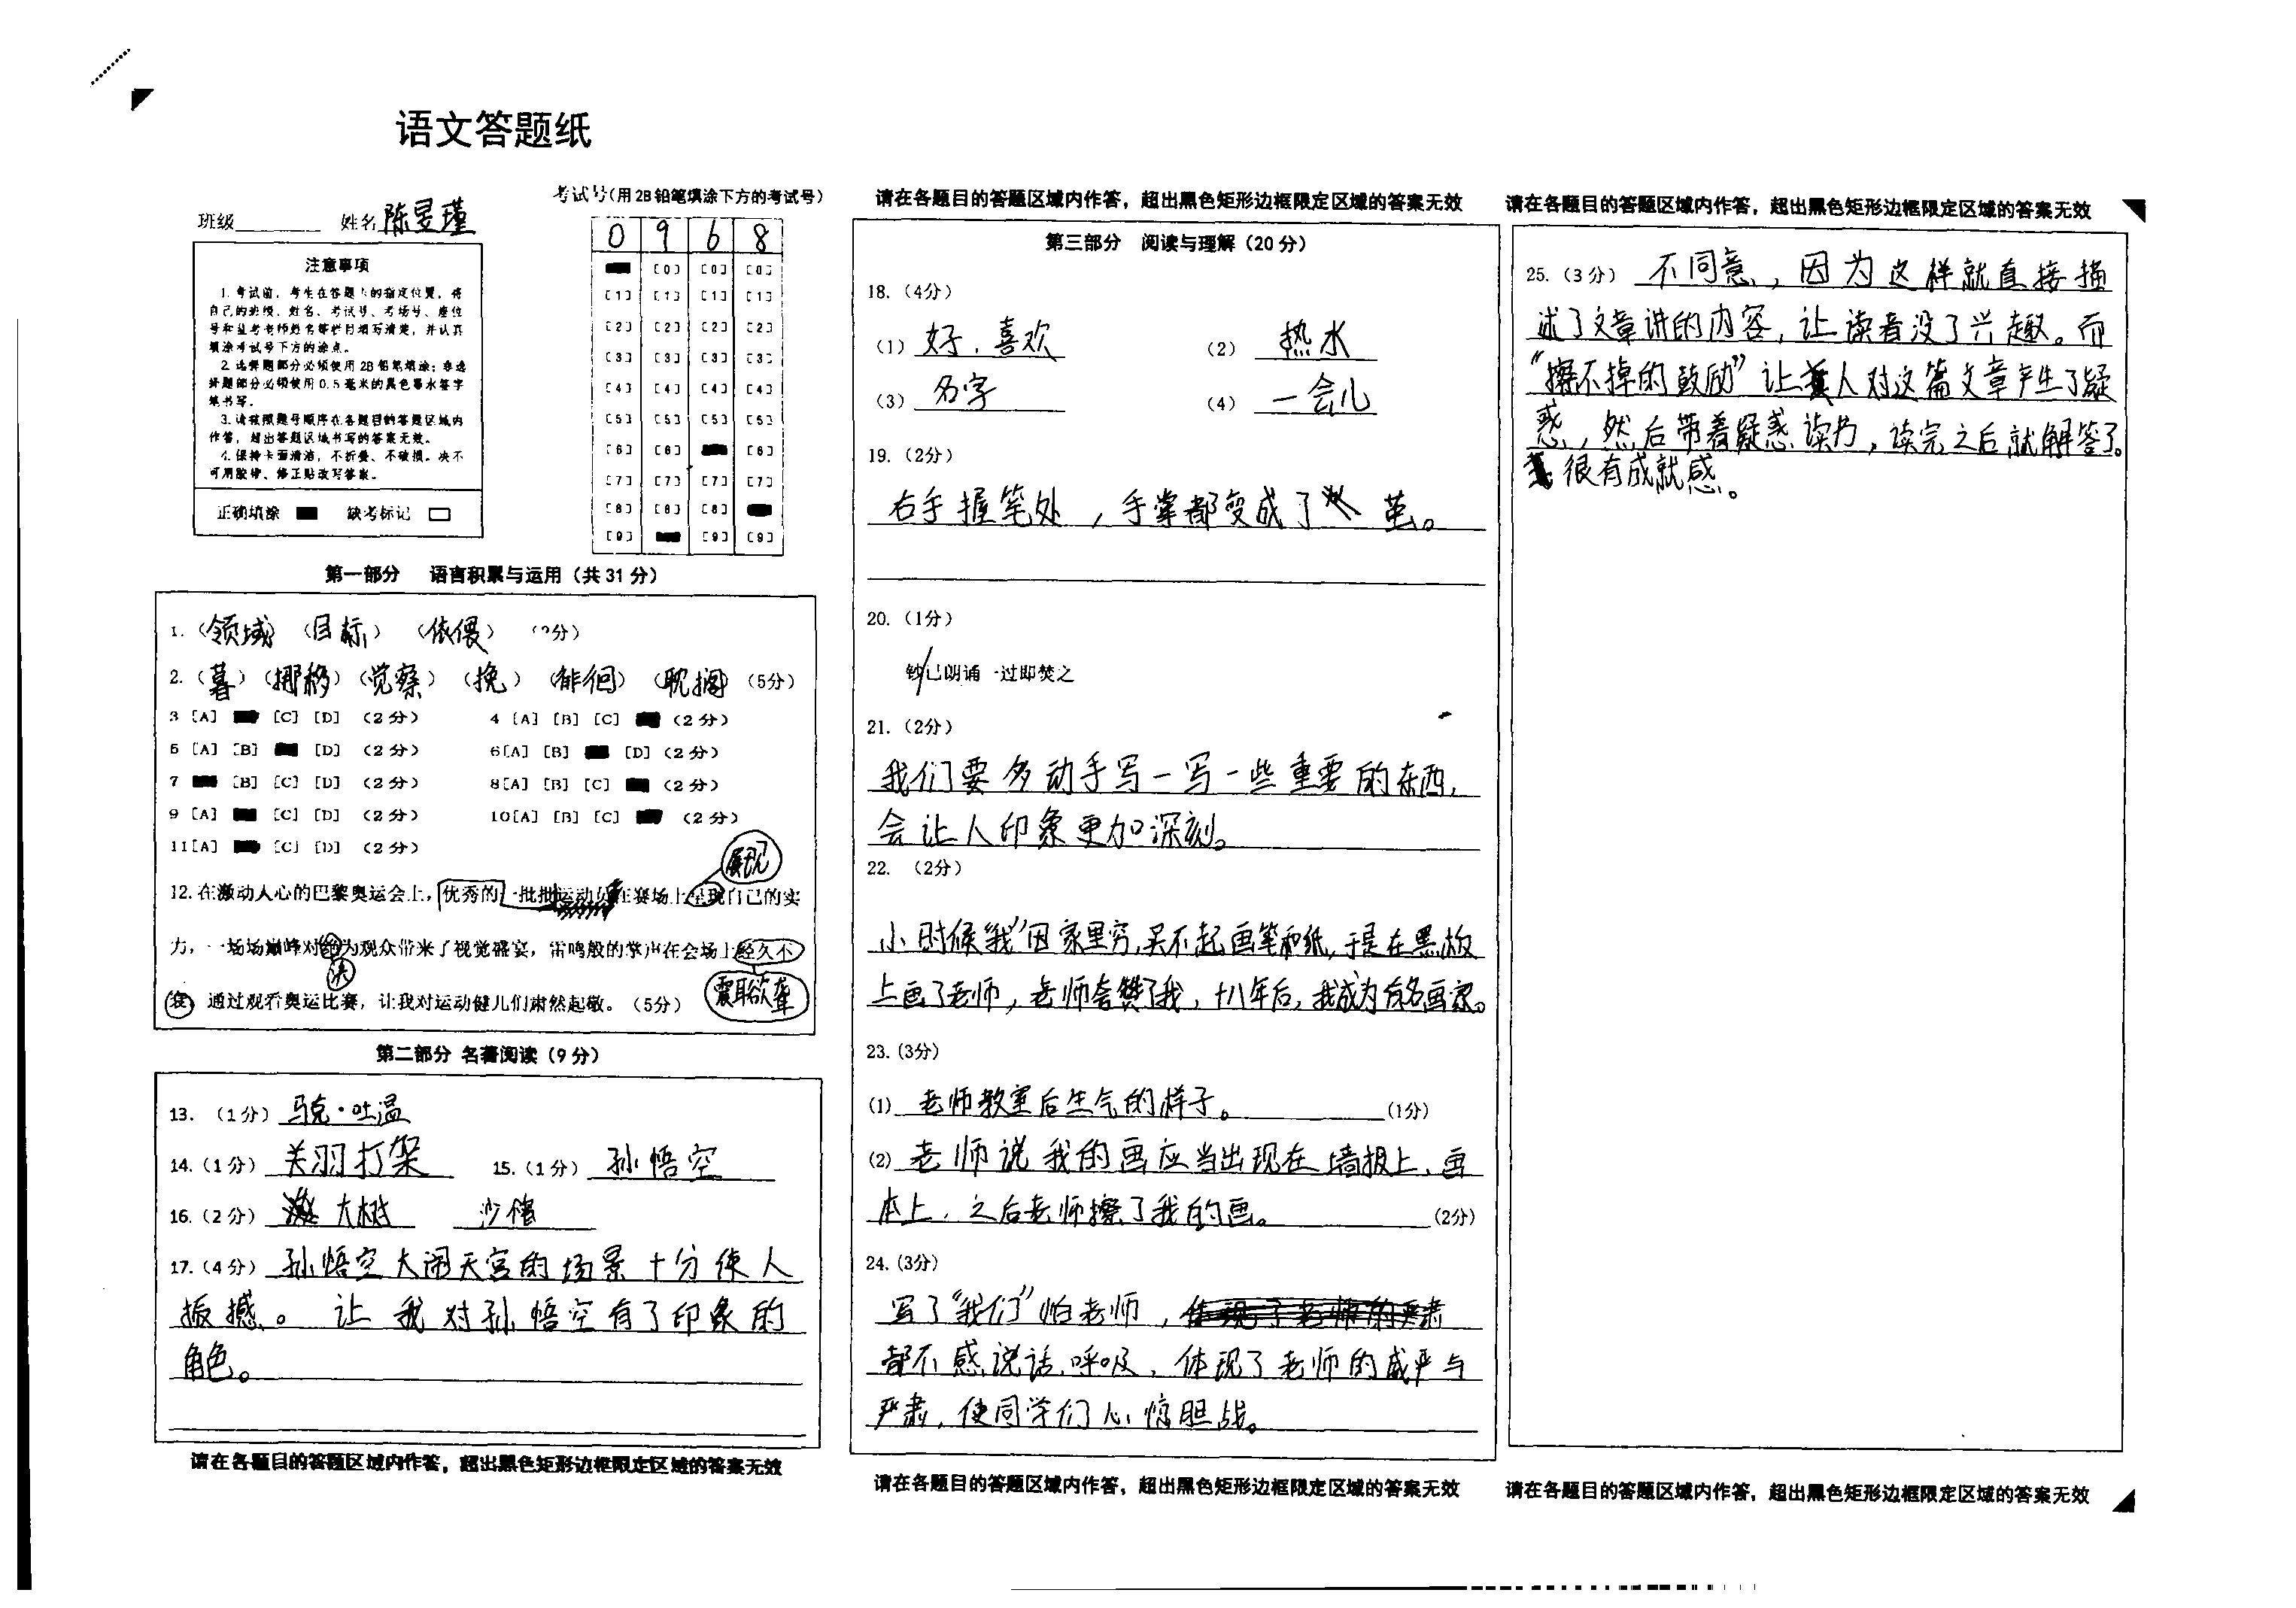 语文答题纸
班级 姓名 陈昱瑾
考试号(用2B铅笔填涂下方的考试号)
0 9 6 8
[0] [0] [0]
[1] [1] [1] [1]
[2] [2] [2] [2]
[3] [3] [3] [3]
[4] [4] [4] [4]
[5] [5] [5] [5]
[6] [6] [6]
[7] [7] [7] [7]
[8] [8] [8]
[9] [9] [9]
注意事项
1.考试前,考生在答题卡的指定位置,将
自己的班级、姓名、考试号、考场号、座位
号和监考老师姓名等栏目填写清楚,并认真
填涂考试号下方的涂点。
2.选择题部分必须使用2B铅笔填涂;非选
择题部分必须使用0.5毫米的黑色墨水签字
笔书写。
3.请按照题号顺序在各题目的答题区域内
作答,超出答题区域书写的答案无效。
4.保持卡面清洁,不折叠、不破损。决不
可用胶带、修正贴改写答案。
正确填涂 缺考标记
第一部分 语言积累与运用(共31分)
1.(领域)(目标)(依偎)(?分)
2.(暮)(挪移)(觉察)(挽)(徘徊)(耽搁)(5分)
3 [A] [C] [D] (2分) 4 [A] [B] [C] (2分)
5 [A] [B] [D] (2分) 6[A] [B] [D] (2分)
7 [B] [C] [D] (2分) 8[A] [B] [C] (2分)
9 [A] [C] [D] (2分) 10[A] [B] [C] (2分)
11[A] [C] [D] (2分)
展现
12.在激动人心的巴黎奥运会上,优秀的一批批运动员在赛场上呈现自己的实
力,一场场巅峰对绝为观众带来了视觉盛宴,雷鸣般的掌声在会场上经久不
决
衰 通过观看奥运比赛,让我对运动健儿们肃然起敬。(5分)
震耳欲聋
第二部分 名著阅读(9分)
13.(1分)马克·吐温
14.(1分)关羽打架 15.(1分)孙悟空
16.(2分)大树 沙僧
17.(4分)孙悟空大闹天宫的场景十分使人
振撼。让我对孙悟空有了印象的
角色。
请在各题目的答题区域内作答,超出黑色矩形边框限定区域的答案无效
请在各题目的答题区域内作答,超出黑色矩形边框限定区域的答案无效
第三部分 阅读与理解(20分)
18.(4分)
(1)好,喜欢 (2)热水
(3)名字 (4)一会儿
19.(2分)
右手握笔处,手掌都变成了茧。
20.(1分)
钞/已朗诵一过即焚之
21.(2分)
我们要多动手写一写一些重要的东西,
会让人印象更加深刻。
22.(2分)
小时候“我”因家里穷,买不起画笔和纸,于是在黑板
上画了老师,老师夸赞了我,十八年后,我成为有名画家。
23.(3分)
(1)老师教室后生气的样子。(1分)
(2)老师说我的画应当出现在墙报上,画
本上,之后老师擦了我的画。(2分)
24.(3分)
写了“我们”怕老师,
都不感说话,呼吸,体现了老师的威严与
严肃,使同学们心惊胆战。
请在各题目的答题区域内作答,超出黑色矩形边框限定区域的答案无效
请在各题目的答题区域内作答,超出黑色矩形边框限定区域的答案无效
25.(3分)不同意,因为这样就直接描
述了文章讲的内容,让读者没了兴趣。而
“擦不掉的鼓励”让人对这篇文章产生了疑
惑,然后带着疑惑读为,读完之后就解答了。
很有成就感。
请在各题目的答题区域内作答,超出黑色矩形边框限定区域的答案无效